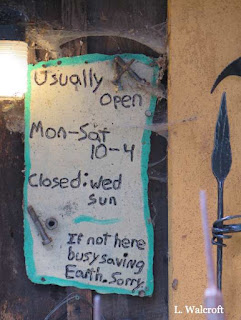 Usually
open
Mon-Sat
10-4
Closed: Wed
sun
If not here
busy saving
Earth. Sorry.
L. Walcroft